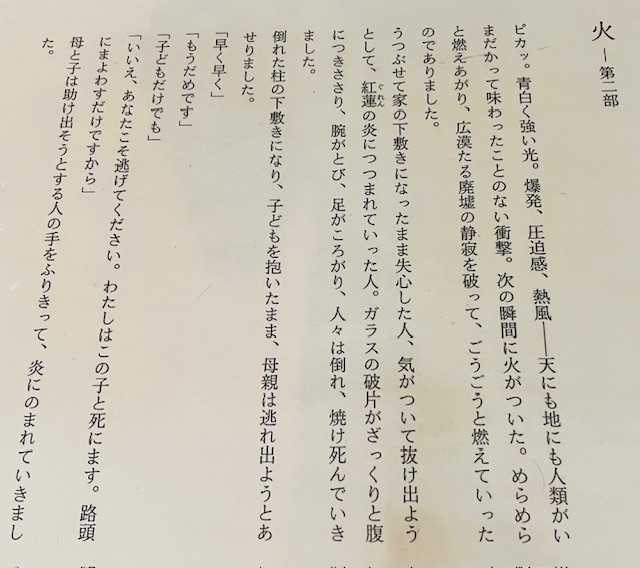 火―第二部
ピカッ。青白く強い光。爆発、圧迫感、熱風――天にも地にも人類がい
まだかって味わったことのない衝撃。次の瞬間に火がついた。めらめら
と燃えあがり、広漠たる廃墟の静寂を破って、ごうごうと燃えていった
のでありました。
うつぶせて家の下敷きになったまま失心した人、気がついて抜け出よう
として、紅蓮の炎につつまれていった人。ガラスの破片がざっくりと腹
ぐれん
につきささり、腕がとび、足がころがり、人々は倒れ、焼け死んでいき
ました。
倒れた柱の下敷きになり、子どもを抱いたまま、母親は逃れ出ようとあ
せりました。
「早く早く」
「もうだめです」
「子どもだけでも」
「いいえ、あなたこそ逃げてください。わたしはこの子と死にます。路頭
にまよわすだけですから」
母と子は助け出そうとする人の手をふりきって、炎にのまれていきまし
た。